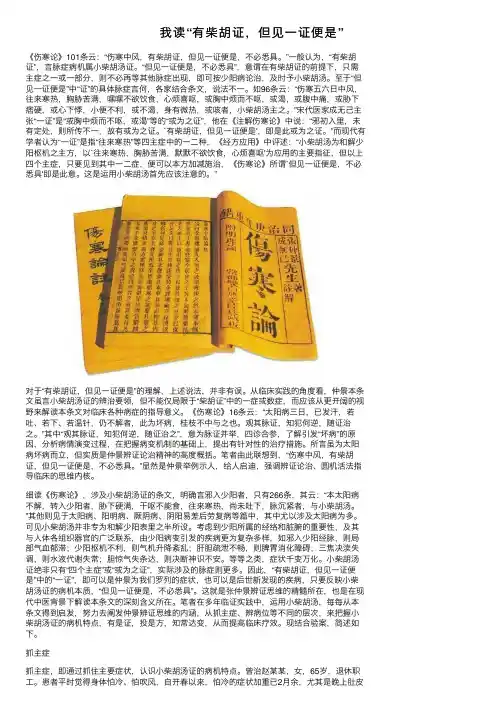 我读“有柴胡证，但见一证便是”
《伤寒论》101条云：“伤寒中风，有柴胡证，但见一证便是，不必悉具。”一般认为，“有柴胡
证”，言脉症病机属小柴胡汤证。“但见一证便是，不必悉具”，意谓在有柴胡证的前提下，只需
主症之一或一部分，则不必再等其他脉症出现，即可按少阳病论治，及时予小柴胡汤。至于“但
见一证便是”中“证”的具体脉症言何，各家结合条文，说法不一。如96条云：“伤寒五六日中风，
往来寒热，胸胁苦满，嘿嘿不欲饮食，心烦喜呕，或胸中烦而不呕，或渴，或腹中痛，或胁下
痞硬，或心下悸，小便不利，或不渴，身有微热，或咳者，小柴胡汤主之。”宋代医家成无己主
张“一证”是“或胸中烦而不呕、或渴”等的“或为之证”，他在《注解伤寒论》中说：“邪初入里，未
有定处，则所传不一，故有或为之证。‘有柴胡证，但见一证便是’，即是此或为之证。”而现代有
学者认为“一证”是指“往来寒热”等四主症中的一二种，《经方应用》中评述：“小柴胡汤为和解少
阳枢机之主方，以‘往来寒热、胸胁苦满，默默不欲饮食，心烦喜呕’为应用的主要指征，但以上
四个主症，只要见到其中一二症，便可以本方加减施治，《伤寒论》所谓‘但见一证便是，不必
悉具’即是此意。这是运用小柴胡汤首先应该注意的。”
傷寒論
對于“有柴胡证，但见一证便是”的理解，上述说法，并非有误。从临床实践的角度看，仲景本条
文虽言小柴胡汤证的辨治要领，但不能仅局限于“柴胡证”中的一症或数症，而应该从更开阔的视
野来解读本条文对临床各种病症的指导意义。《伤寒论》16条云：“太阳病三日，已发汗，若
吐、若下、若温针，仍不解者，此为坏病，桂枝不中与之也。观其脉证，知犯何逆，随证治
之。”其中“观其脉证，知犯何逆，随证治之”，意为脉证并举，四诊合参，了解引发“坏病”的原
因，分析病情演变过程，在把握病变机制的基础上，提出有针对性的治疗措施。所言虽为太阳
病坏病而立，但实质是仲景辨证论治精神的高度概括。笔者由此联想到，“伤寒中风，有柴胡
证，但见一证便是，不必悉具。”显然是仲景举例示人，给人启迪，强调辨证论治、圆机活法指
导临床的思维内核。
细读《伤寒论》，涉及小柴胡汤证的条文，明确言邪入少阳者，只有266条，其云：“本太阳病
不解，转入少阳者，胁下硬满，干呕不能食，往来寒热，尚未吐下，脉沉紧者，与小柴胡汤。
”其他则见于太阳病、阳明病、厥阴病、阴阳易差后劳复病等篇中，其中尤以涉及太阳病为多。
可见小柴胡汤并非专为和解少阳表里之半所设。考虑到少阳所属的经络和脏腑的重要性，及其
与人体各组织器官的广泛联系，由少阳病变引发的疾病更为复杂多样，如邪入少阳经脉，则局
部气血郁滞；少阳枢机不利，则气机升降紊乱；肝胆疏泄不畅，则脾胃消化障碍，三焦决渎失
调，则水液代谢失常；胆惊气失条达，则决断神识不安。等等之类，症状千变万化。小柴胡汤
证绝非只有“四个主症”或“或为之证”，实际涉及的脉症则更多。因此，“有柴胡证，但见一证便
是”中的“一证”，即可以是仲景为我们罗列的症状，也可以是后世新发现的疾病，只要反映小柴
胡汤证的病机本质，“但见一证便是，不必悉具”。这就是张仲景辨证思维的精髓所在，也是在现
代中医背景下解读本条文的深刻含义所在。笔者在多年临证实践中，运用小柴胡汤，每每从本
条文得到启发，努力去阐发仲景辨证思维的内涵，从抓主症、辨病位等不同的层次，来把握小
柴胡汤证的病机特点，有是证，投是方，知常达变，从而提高临床疗效。现结合验案，简述如
下。
抓主症
抓主症，即通过抓住主要症状，认识小柴胡汤证的病机特点。曾治赵某某，女，65岁，退休职
工。患者平时觉得身体怕冷、怕吹风，自开春以来，怕冷的症状加重已2月余，尤其是晚上肚皮